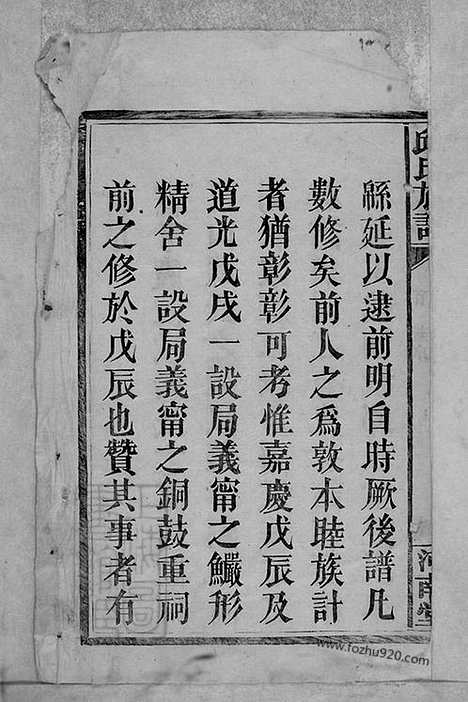 邱氏族譜
緜延以逮前明自時厥後譜凡
數修矣前人之為敦本睦族計
者猶彰彰可考惟嘉慶戊辰及
道光戊戌一設局義甯之鱺形
精舍一設局義甯之銅鼓重祠
前之修於戊辰也贊其事者有
河南堂
www.fozhu920.com